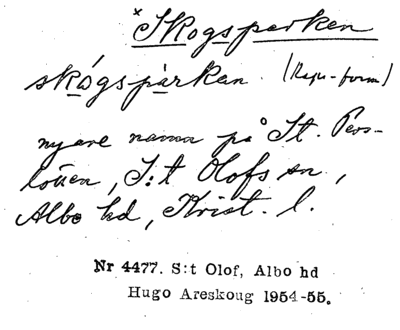 ×Skogsparken
skógspàrkan. (Rspr-form)
nyare namn på St. Pers-
löten, S:t Olofs sn,
Albo hd, Krist. l.
Nr 4477. S:t Olof, Albo hd
Hugo Areskoug 1954-55.